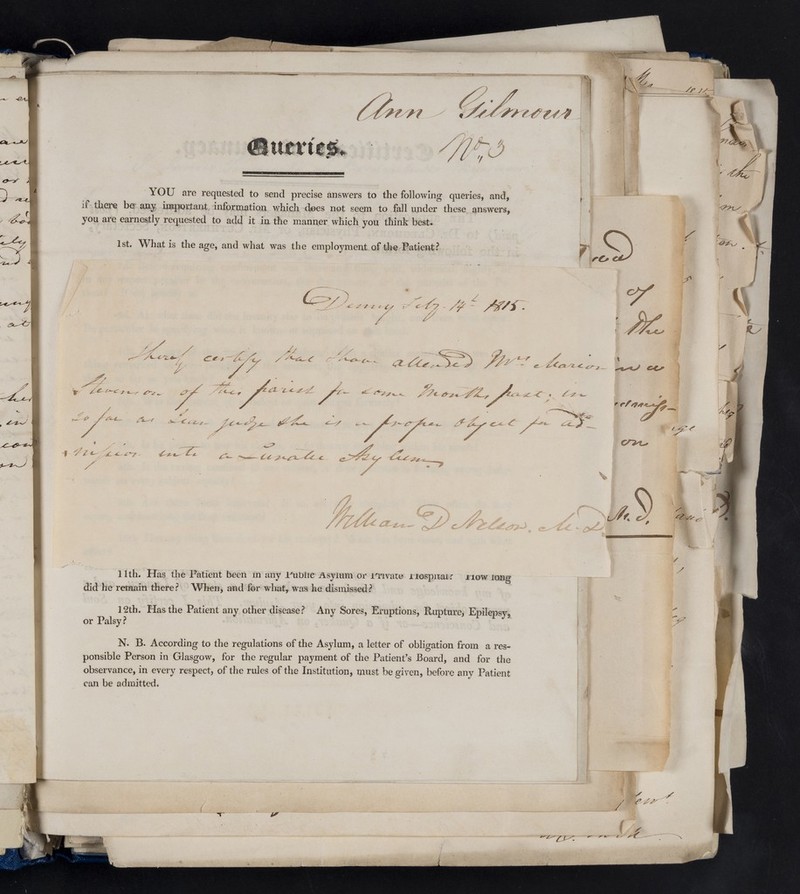 Ann Gilmour
Queries. No. 3
YOU are requested to send precise answers to the following queries, and,
if there be any important information which does not seem to fall under these answers,
you are earnestly requested to add it in the manner which you think best.
1st. What is the age, and what was the employment of the Patient?
Denny 14th 1815.
certify that I have attended Mrs. Marion
Stevenson of this parish for some Months past; in
so far as I can judge she is a proper object for ad-
mission into a Lunatic Asylum
William D Nelson. M.D
11th. Has the Patient been in any Public Asylum or Private Hospital? How long
did he remain there? When, and for what, was he dismissed?
12th. Has the Patient any other disease? Any Sores, Eruptions, Rupture, Epilepsy,
or Palsy?
N. B. According to the regulations of the Asylum, a letter of obligation from a res-
ponsible Person in Glasgow, for the regular payment of the Patient's Board, and for the
observance, in every respect, of the rules of the Institution, must be given, before any Patient
can be admitted.
of
the
on
M.d.